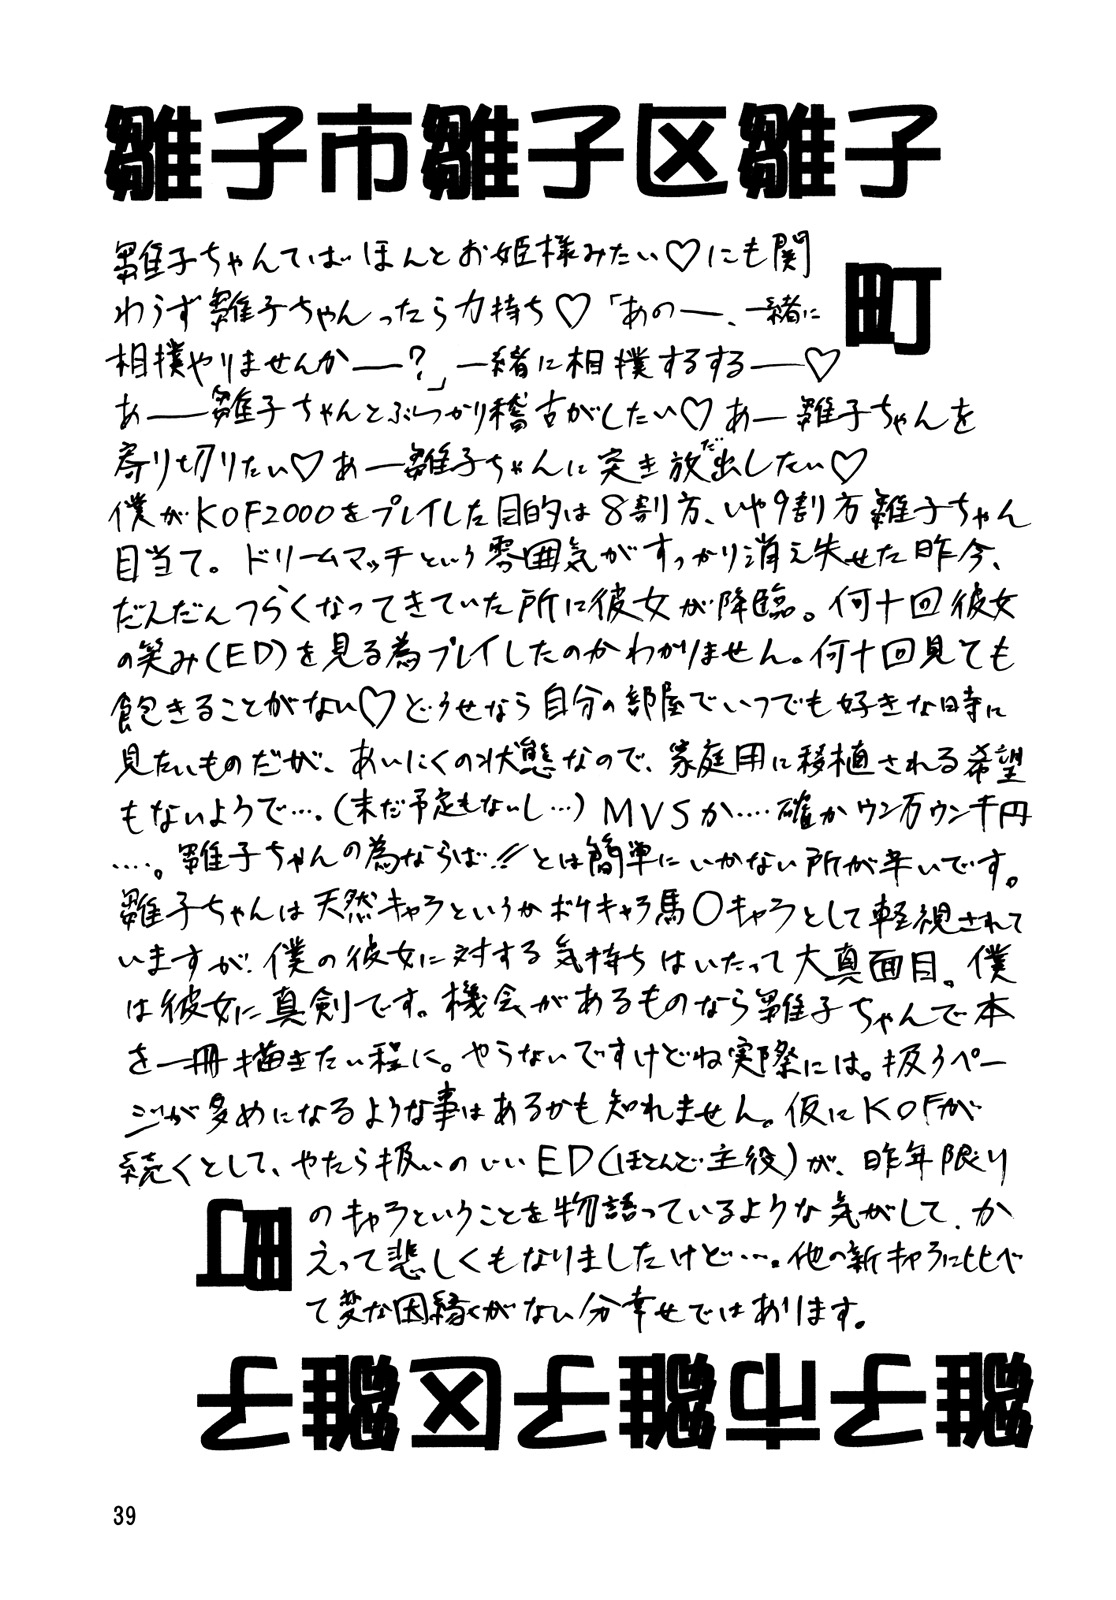 雛子市雛子区雛子
町
雛子ちゃんてばほんとお姫様みたい♡にも関
わらず雛子ちゃんったら力持ち♡「あのー、一緒に
相撲やりませんかー?」一緒に相撲するするー♡
あー雛子ちゃんとぶつかり稽古がしたい♡あー雛子ちゃんを
寄り切りたい♡あー雛子ちゃんに突き放だ出したい♡
僕がKOF2000をプレイした目的は8割方、いや9割方雛子ちゃん
目当て。ドリームマッチという雰囲気がすっかり消え失せた昨今、
だんだんつらくなってきていた所に彼女が降臨。何十回彼女
の笑み(ED)を見る為プレイしたのかわかりません。何十回見ても
飽きることがない♡どうせなら自分の部屋でいつでも好きな時に
見たいものだが、あいにくの状態なので、家庭用に移植される希望
もないようで…。(未だ予定もないし…)MVSか‥‥確かウン万ウン千円
‥‥。雛子ちゃんの為ならば!!とは簡単にいかない所が辛いです。
雛子ちゃんは天然キャラというかボケキャラ馬〇キャラとして軽視されて
いますが、僕の彼女に対する気持ちはいたって大真面目。僕
は彼女に真剣です。機会があるものなら雛子ちゃんで本
を一冊描きたい程に。やらないですけどね実際には。扱うペー
ジが多めになるような事はあるかも知れません。仮にKOFが
続くとして、やたら扱いのいいED(ほとんど主役)が、昨年限り
のキャラということを物語っているような気がして、か
えって悲しくもなりましたけど…。他の新キャラに比べ
て変な因縁くがない分幸せではあります。
町
雛子市雛子区雛子
39